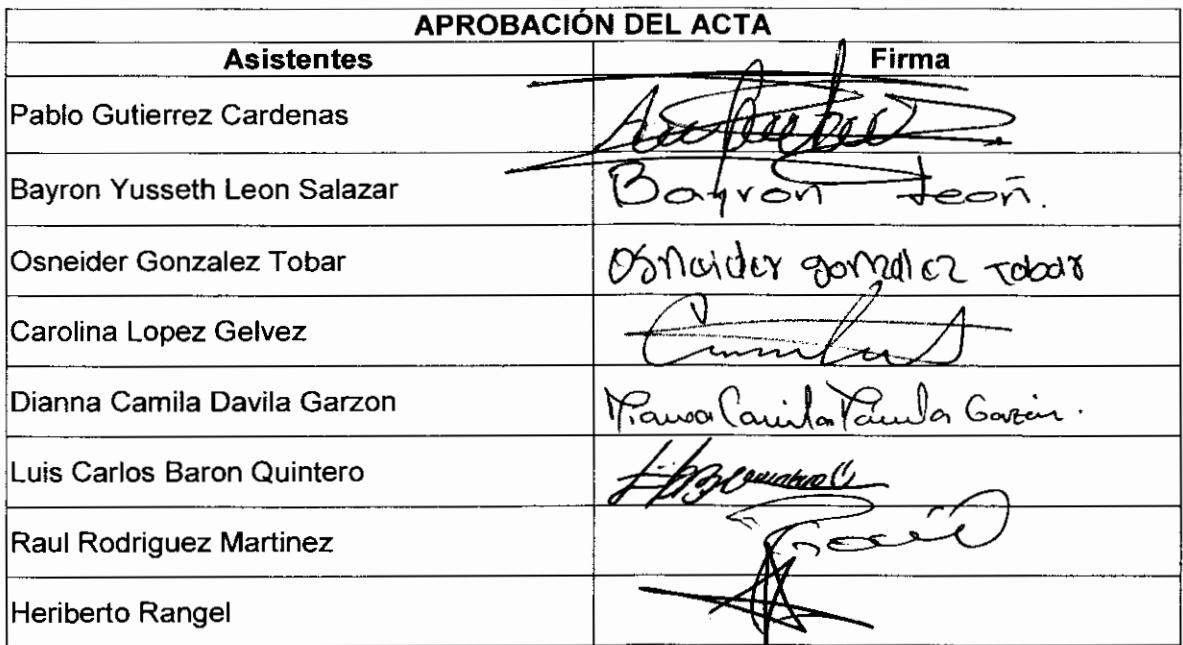 APROBACIÓN DEL ACTA
Asistentes Firma
Pablo Gutierrez Cardenas
Bayron Yusseth Leon Salazar Bayron Leon.
Osneider Gonzalez Tobar Osneider gonzalez Tobar
Carolina Lopez Gelvez
Dianna Camila Davila Garzon Dianna Camila Davila Garzón.
Luis Carlos Baron Quintero
Raul Rodriguez Martinez
Heriberto Rangel